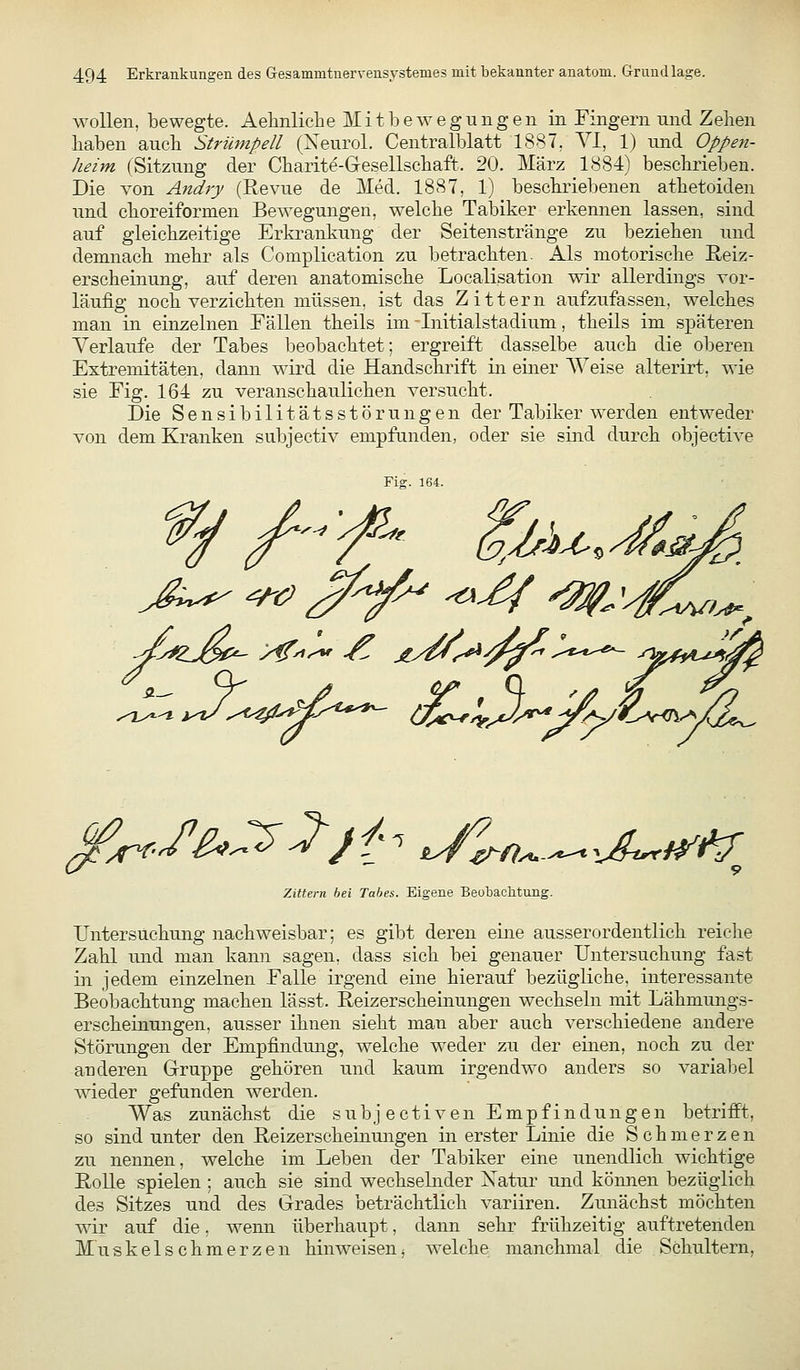 494 Erkrankungen des Gesammtnervensystemes mit bekannter anatom. Grundlage.
wollen, bewegte. Aehnliche Mitbewegungen in Fingern und Zehen
haben auch Strümpell (Neurol. Centralblatt 1887, VI, 1) und Oppen-
heim (Sitzung der Charité-Gesellschaft. 20. März 1884) beschrieben.
Die von Andry (Revue de Méd. 1887, 1) beschriebenen athetoiden
und choreiformen Bewegungen, welche Tabiker erkennen lassen, sind
auf gleichzeitige Erkrankung der Seitenstränge zu beziehen und
demnach mehr als Complication zu betrachten. Als motorische Reiz-
erscheinung, auf deren anatomische Localisation wir allerdings vor-
läufig noch verzichten müssen, ist das Zittern aufzufassen, welches
man in einzelnen Fällen theils im Initialstadium, theils im späteren
Verlaufe der Tabes beobachtet; ergreift dasselbe auch die oberen
Extremitäten, dann wird die Handschrift in einer Weise alterirt, wie
sie Fig. 164 zu veranschaulichen versucht.
Die Sensibilitätsstörungen der Tabiker werden entweder
von dem Kranken subjectiv empfunden, oder sie sind durch objective
Fig. 164.
Zittern bei Tabes. Eigene Beobachtung.
Untersuchung nachweisbar; es gibt deren eine ausserordentlich reiche
Zahl und man kann sagen, dass sich bei genauer Untersuchung fast
in jedem einzelnen Falle irgend eine hierauf bezügliche, interessante
Beobachtung machen lässt. Reizerscheinungen wechseln mit Lähmungs-
erscheinungen, ausser ihnen sieht man aber auch verschiedene andere
Störungen der Empfindung, welche weder zu der einen, noch zu der
anderen Gruppe gehören und kaum irgendwo anders so variabel
wieder gefunden werden.
Was zunächst die subjectiven Empfindungen betrifft,
so sind unter den Reizerscheinungen in erster Linie die Schmerzen
zu nennen, welche im Leben der Tabiker eine unendlich wichtige
Rolle spielen; auch sie sind wechselnder Natur und können bezüglich
des Sitzes und des Grades beträchtlich variiren. Zunächst möchten
wir auf die, wenn überhaupt, dann sehr frühzeitig auftretenden
Muskelschmerzen hinweisen, welche manchmal die Schultern,